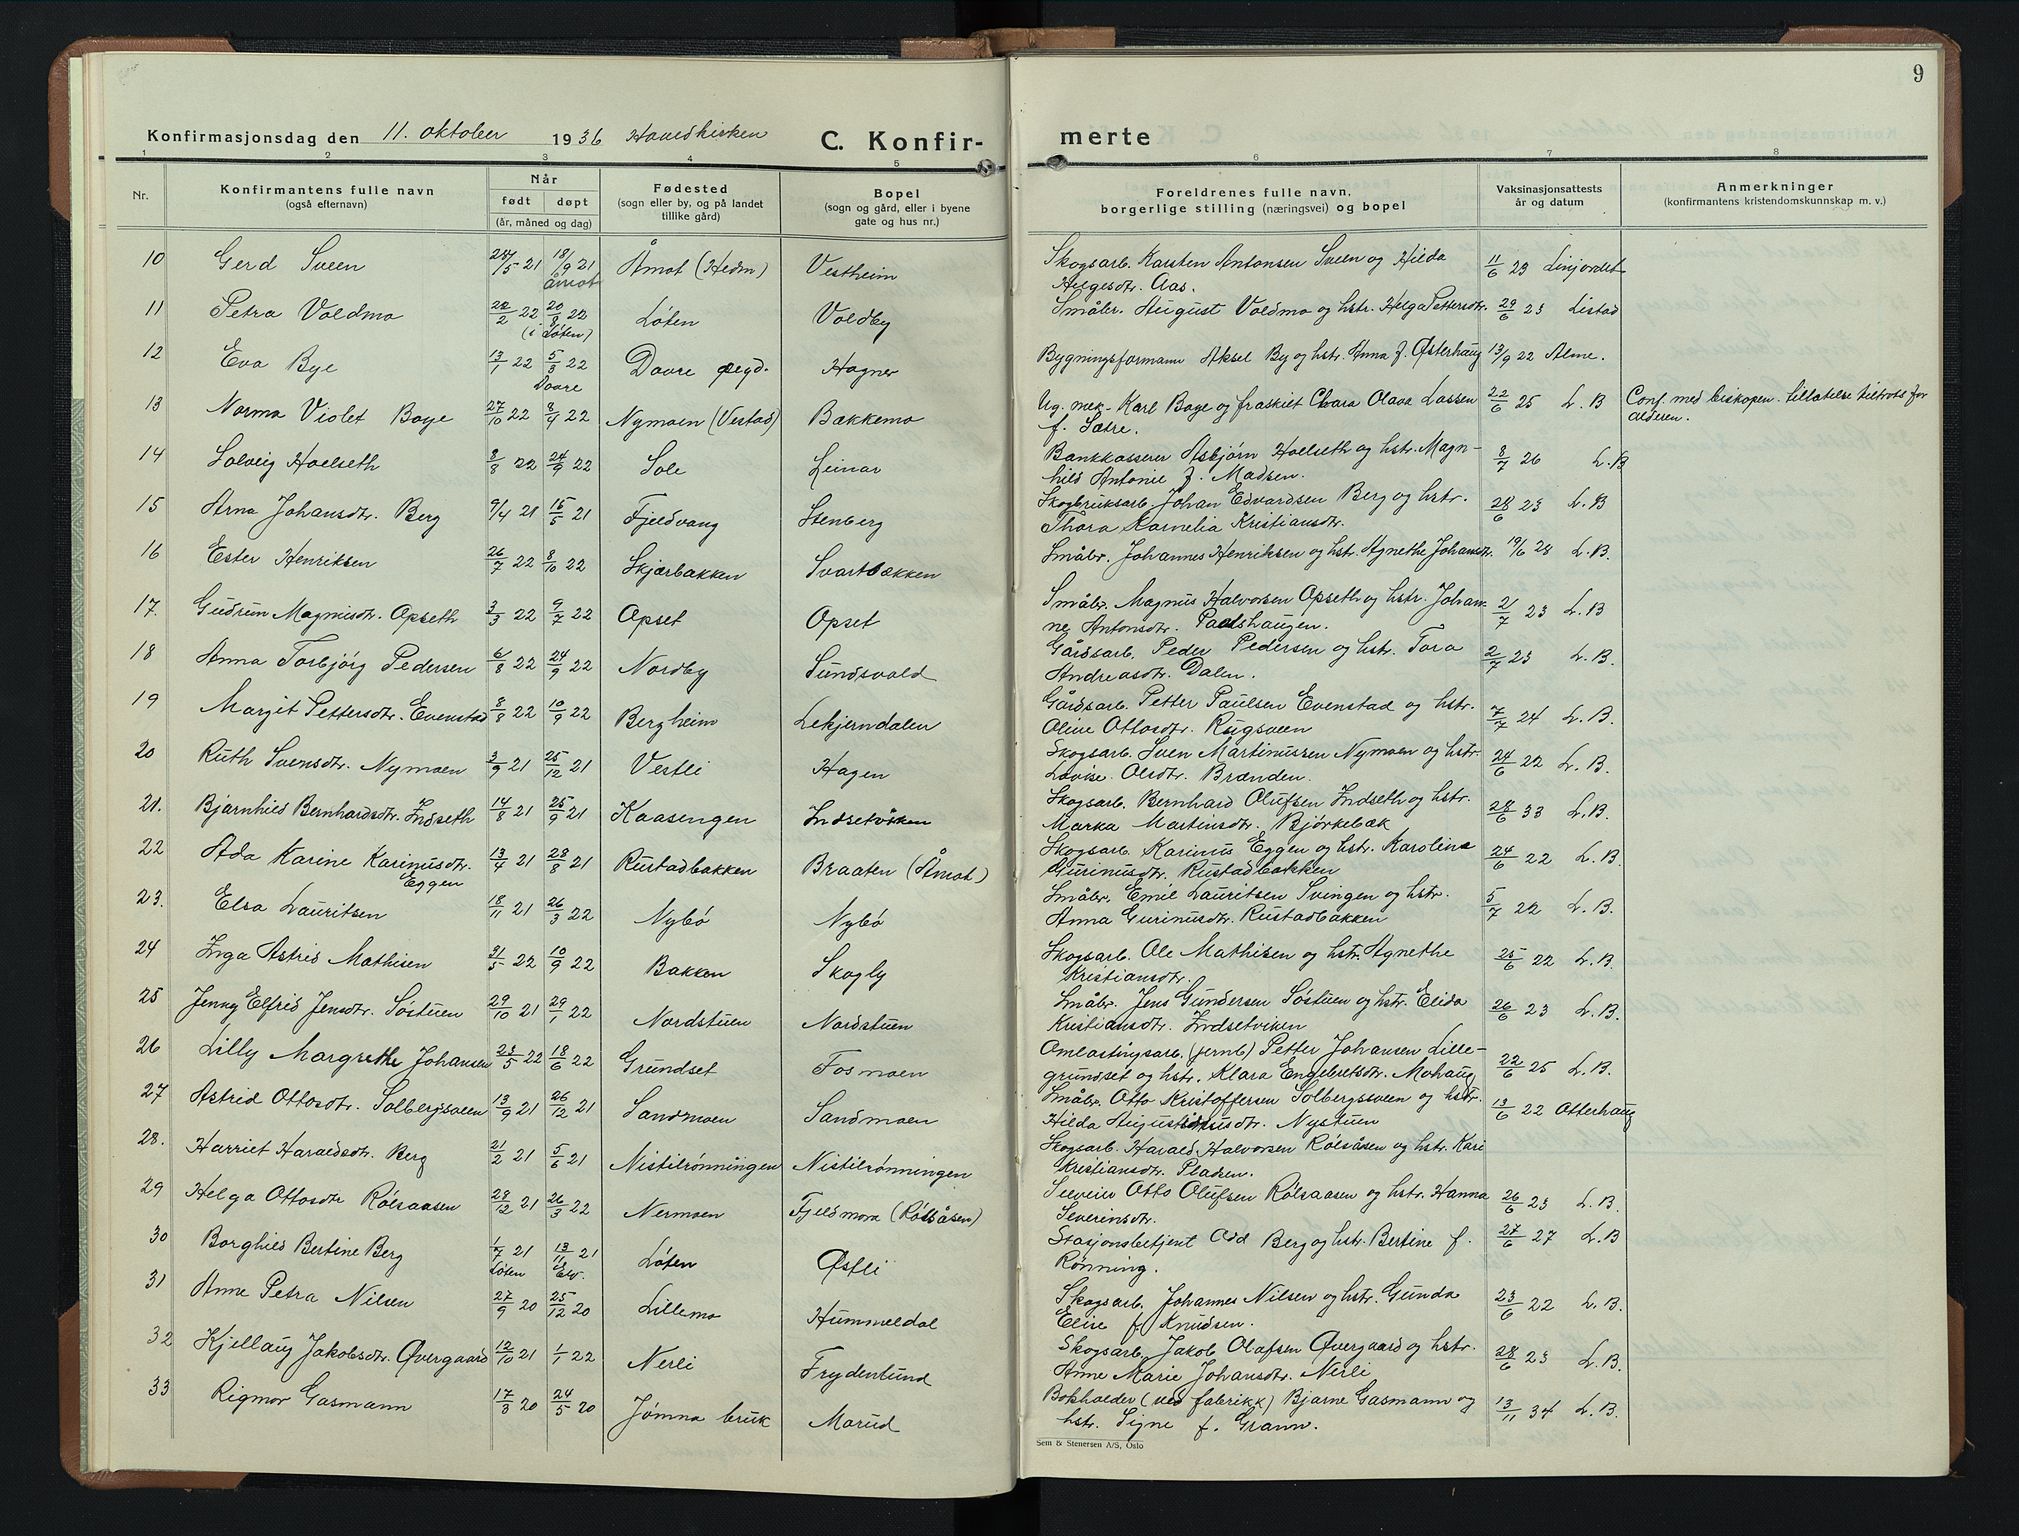 9
Konfirmasjonsdag den 11. oktober 1936 Hovedkirken C. Konfir- merte
1 2 3 4 5 6 7 8
Nr. Konfirmantens fulle navn (også efternavn) Når født døpt (år, måned og dag) Fødested (sogn eller by, og på landet tillike gård) Bopel (sogn og gård, eller i byene gate og hus nr.) Foreldrenes fulle navn, borgerlige stilling (næringsvei) og bopel Vaksinasjonsattests år og datum Anmerkninger (konfirmantens kristendomskunnskap m. v.)
10 Gerd Sveen 28/5 21 18/9 21 Åmot Åmot (Hedm) Vestheim Skogsarb. Karsten Antonsen Sveen og Hilda 11/6 23 Linjordet
Helgesdtr. Aas.
11 Petra Voldmo 22/2 22 20/8 22 (i Løten) Løten Voldby Småbr. August Voldmo og hstr. Helga Pettersdtr. 29/6 23 Listad
12 Eva Bye 13/1 22 5/3 22 Dovre Dovre pregd. Hagner Bygningsformann Aksel By og hstr. Anna f. Østerhaug 13/9 22 Alme.
13 Norma Violet Boye 27/10 22 8/4 22 Nymoen (Vestad) Bakkemo Ug. mek. Karl Boye og fraskilt Clara Olava Lassen 22/6 25 L. B Conf. med biskopen. tillatelse tiltrots for
f. Sætre. alderen.
14 Solveig Hoelseth 8/8 22 24/9 22 Sole Leinar Bankkasserer Asbjørn Hoelseth og hstr. Magn- 8/7 26 L. B
hild Antonie f. Madsen.
15 Arna Johansdtr. Berg 9/4 21 16/5 21 Fjeldvang Stenberg Skogbruksarb. Johan Edvardsen Berg og hstr. 28/6 23 L. B
Thora Kornelia Kristiansdtr.
16 Ester Henriksen 26/7 22 8/10 22 Skjærbakken Svartbækken Småbr. Johannes Henriksen og hstr. Agnethe Johansdtr. 19/6 28 L. B.
17. Gudrun Magnusdtr. Opseth 3/3 22 9/7 22 Opset Opset Småbr. Magnus Halvorsen Opseth og hstr. Johan- 2/7 23 L. B
ne Antonsdtr. Paalshaugen.
18 Anna Torbjørg Pedersen 6/8 22 24/9 22 Nordby Sundsvold Gårdsarb. Peder Pedersen og hstr. Tora 2/7 23 L. B.
Andreasdtr. Dalen.
19 Margit Pettersdtr. Evenstad 8/8 22 10/9 22 Bergheim Lekjerndalen Gårdsarb. Petter Paulsen Evenstad og hstr. 7/7 24 L. B.
Oline Ottosdtr. Rugsveen
20 Ruth Svensdtr. Nymoen 3/9 21 25/12 21 Vestli Hagen Skogsarb. Sven Martinussen Nymoen og hstr. 24/6 22 L. B.
Lovise Olsdtr. Brænden.
21. Bjarnhild Bernhardsdtr. Indseth 14/8 21 25/9 21 Kaasengen Indsetviken Skogsarb. Bernhard Olufsen Indseth og hstr. 28/6 33 L. B.
Marka Martinsdtr. Bjørkebæk
22 Ada Karine Karinusdtr. Eggen 13/4 21 28/8 21 Rustadbakken Braaten (Åmot) Skogsarb. Karinus Eggen og hstr. Karoline 24/6 22 L. B.
Gurinusdtr. Rustadbakken
23. Elsa Lauritsen 18/11 21 26/3 22 Nybø Nybø Småbr. Emil Lauritsen Svingen og hstr. 5/7 22 L. B.
Anna Gurinusdtr. Rustadbakken
24 Inga Astrid Mathisen 31/5 22 10/9 22 Bakken Skogly Skogsarb. Ole Mathisen og hstr. Agnethe 25/6 22 L. B.
Kristiansdtr.
25 Jenny Elfrid Jensdtr. Søstuen 29/10 21 29/1 22 Nordstuen Nordstuen Småbr. Jens Gundersen Søstuen og hstr. Elida 26/6 23 L. B.
Kristiansdtr. Indsetviken
26 Lilly Margrethe Johansen 23/5 22 18/6 22 Grundset Fosmoen Omlastingsarb. (jernb) Petter Johansen Lille- 22/6 25 L. B.
grundset og hstr. Klara Engebretsdtr. Mohaug
27 Astrid Ottosdtr. Solbergsveen 13/9 21 26/12 21 Sandmoen Sandmoen Småbr. Otto Kristoffersen Solbergsveen og hstr. 13/6 22 Otterhaug
Hilda Augustinusdtr. Nystuen
28. Harriet Haraldsdtr. Berg 21/2 21 5/6 21 Nistilrønningen Nistilrønningen Skogsarb. Harald Halvorsen Rølsåsen og hstr. Kari
Kristiansdtr. Pladsen.
29 Helga Ottosdtr Rølsaasen 29/12 21 26/3 22 Nermoen Fjeldmora (Rølsåsen) Selveier Otto Olufsen Rølsaasen og hstr. Hanna 26/6 23 L. B.
Severinsdtr.
30 Borghild Bertine Berg 1/7 21 Løten 13/11 21 Elv. Løten Østli Stasjonsbetjent Odd Berg og hstr. Bertine f. 27/6 27 L. B
Rønning.
31 Anne Petra Nilsen 27/9 20 25/12 20 Lillemo Hummeldal Skogsarb. Johannes Nilsen og hstr. Gunda 23/6 22 L. B.
Elise f. Knudsen.
32 Kjellaug Jakobsdtr. Øvergaard 12/10 21 1/1 22 Nerli Frydenlund Skogsarb. Jakob Olafsen Øvergaard og hstr. 28/6 23 L. B.
Anne Marie Johansdtr. Nerli
33 Rigmor Gasmann 17/3 20 24/5 20 Jømna bruk Morud Bokholder (ved fabrikk) Bjarne Gasmann og 13/11 34 L. B.
hstr. Signe f. Grann.
Sem & Stenersen A/S, Oslo